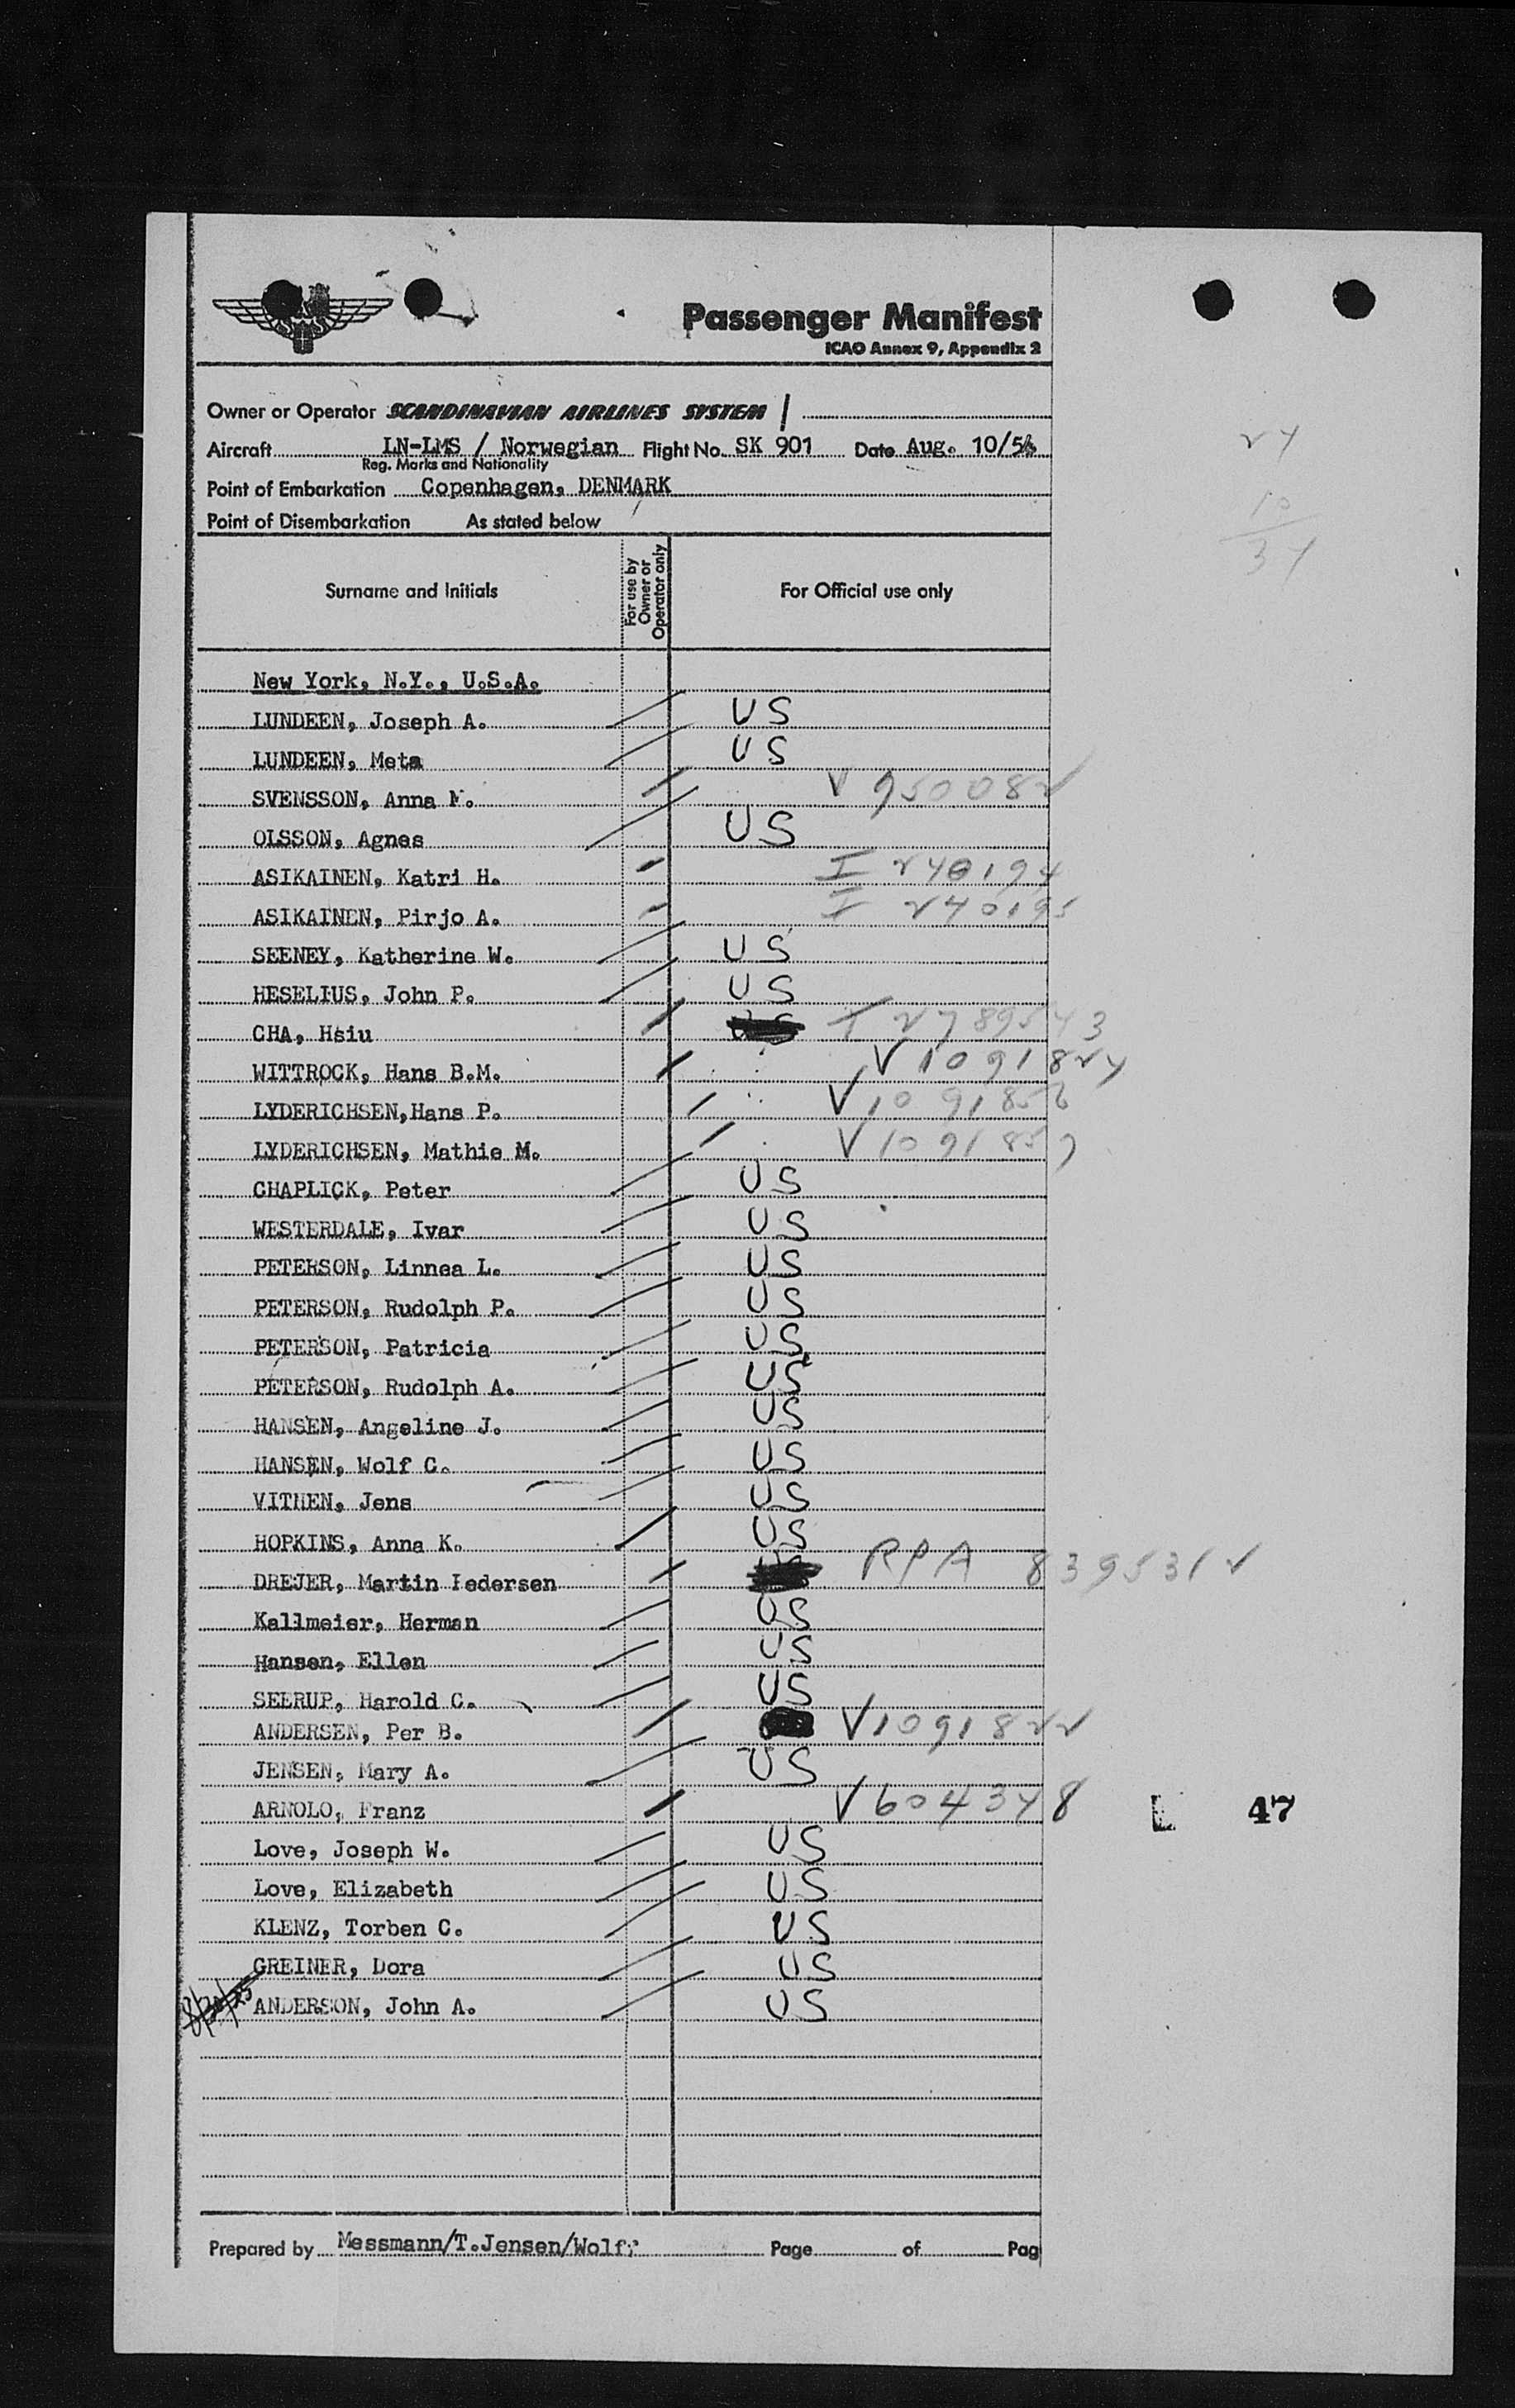 Passenger Manifest
ICAO Annex 9, Appendix 2
Owner or Operator SCANDINAVIAN AIRLINES SYSTEM
Aircraft LN-LMS / Norwegian Flight No. SK 901 Date Aug. 10/55
Reg. Marks and Nationality
Point of Embarkation Copenhagen, DENMARK
Point of Disembarkation As stated below
24
10
34
Surname and Initials For use by Owner or Operator only For Official use only
New York, N.Y., U.S.A.
LUNDEEN, Joseph A. US
LUNDEEN, Meta US
SVENSSON, Anna M. V 950082
OLSSON, Agnes US
ASIKAINEN, Katri H. I 240194
ASIKAINEN, Pirjo A. I 240195
SEENEY, Katherine W. US
HESELIUS, John P. US
CHA, Hsiu I 2789543
WITTROCK, Hans B.M. V 1091824
LYDERICHSEN, Hans P. V 1091856
LYDERICHSEN, Mathie M. V 1091857
CHAPLICK, Peter US
WESTERDALE, Ivar US
PETERSON, Linnea L. US
PETERSON, Rudolph P. US
PETERSON, Patricia US
PETERSON, Rudolph A. US
HANSEN, Angeline J. US
HANSEN, Wolf C. US
VITHEN, Jens US
HOPKINS, Anna K. US
DREJER, Martin Pedersen RPA 8395312
Kallmeier, Herman US
Hansen, Ellen US
SEERUP, Harold C. US
ANDERSEN, Per B. V1091822
JENSEN, Mary A. US
ARNOLO, Franz V604348
47
Love, Joseph W. US
Love, Elizabeth US
KLENZ, Torben C. US
GREINER, Dora US
ANDERSON, John A. US
Prepared by Messmann/T.Jensen/Wolff Page of Pag